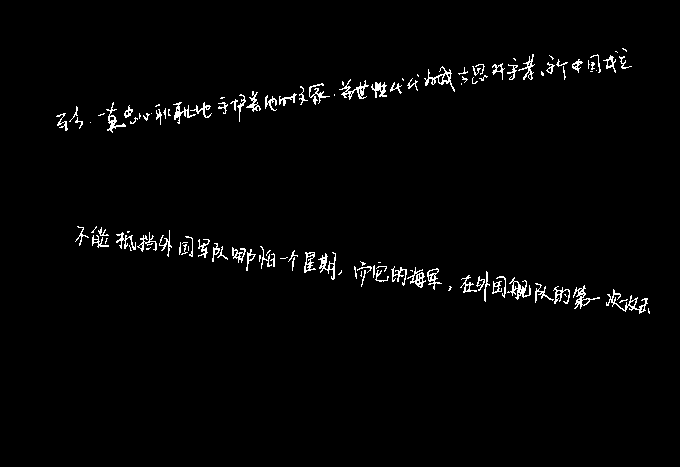 至今,一直忠心耿耿地守护着他的陵寝,并世世代代为成吉思汗守孝。新中国成立
不能抵挡外国军队哪怕一个星期,而它的海军,在外国舰队的第一次攻击